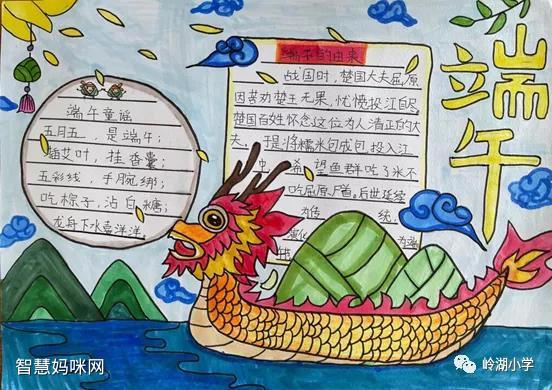 端午
端午童谣
五月五,是端午;
插艾叶,挂香囊;
五彩线,手腕绑;
吃粽子,沾白糖;
龙舟下水喜洋洋。
端午的由来
战国时,楚国大夫屈原
因苦劝楚王无果,忧愤投江自尽
楚国百姓怀念这位为人清正的大
夫,于是将糯米包成包,投入江
中,希望鱼群吃了米不
吃屈原尸首。后世延续
为传统,
智慧妈咪网
岭湖小学